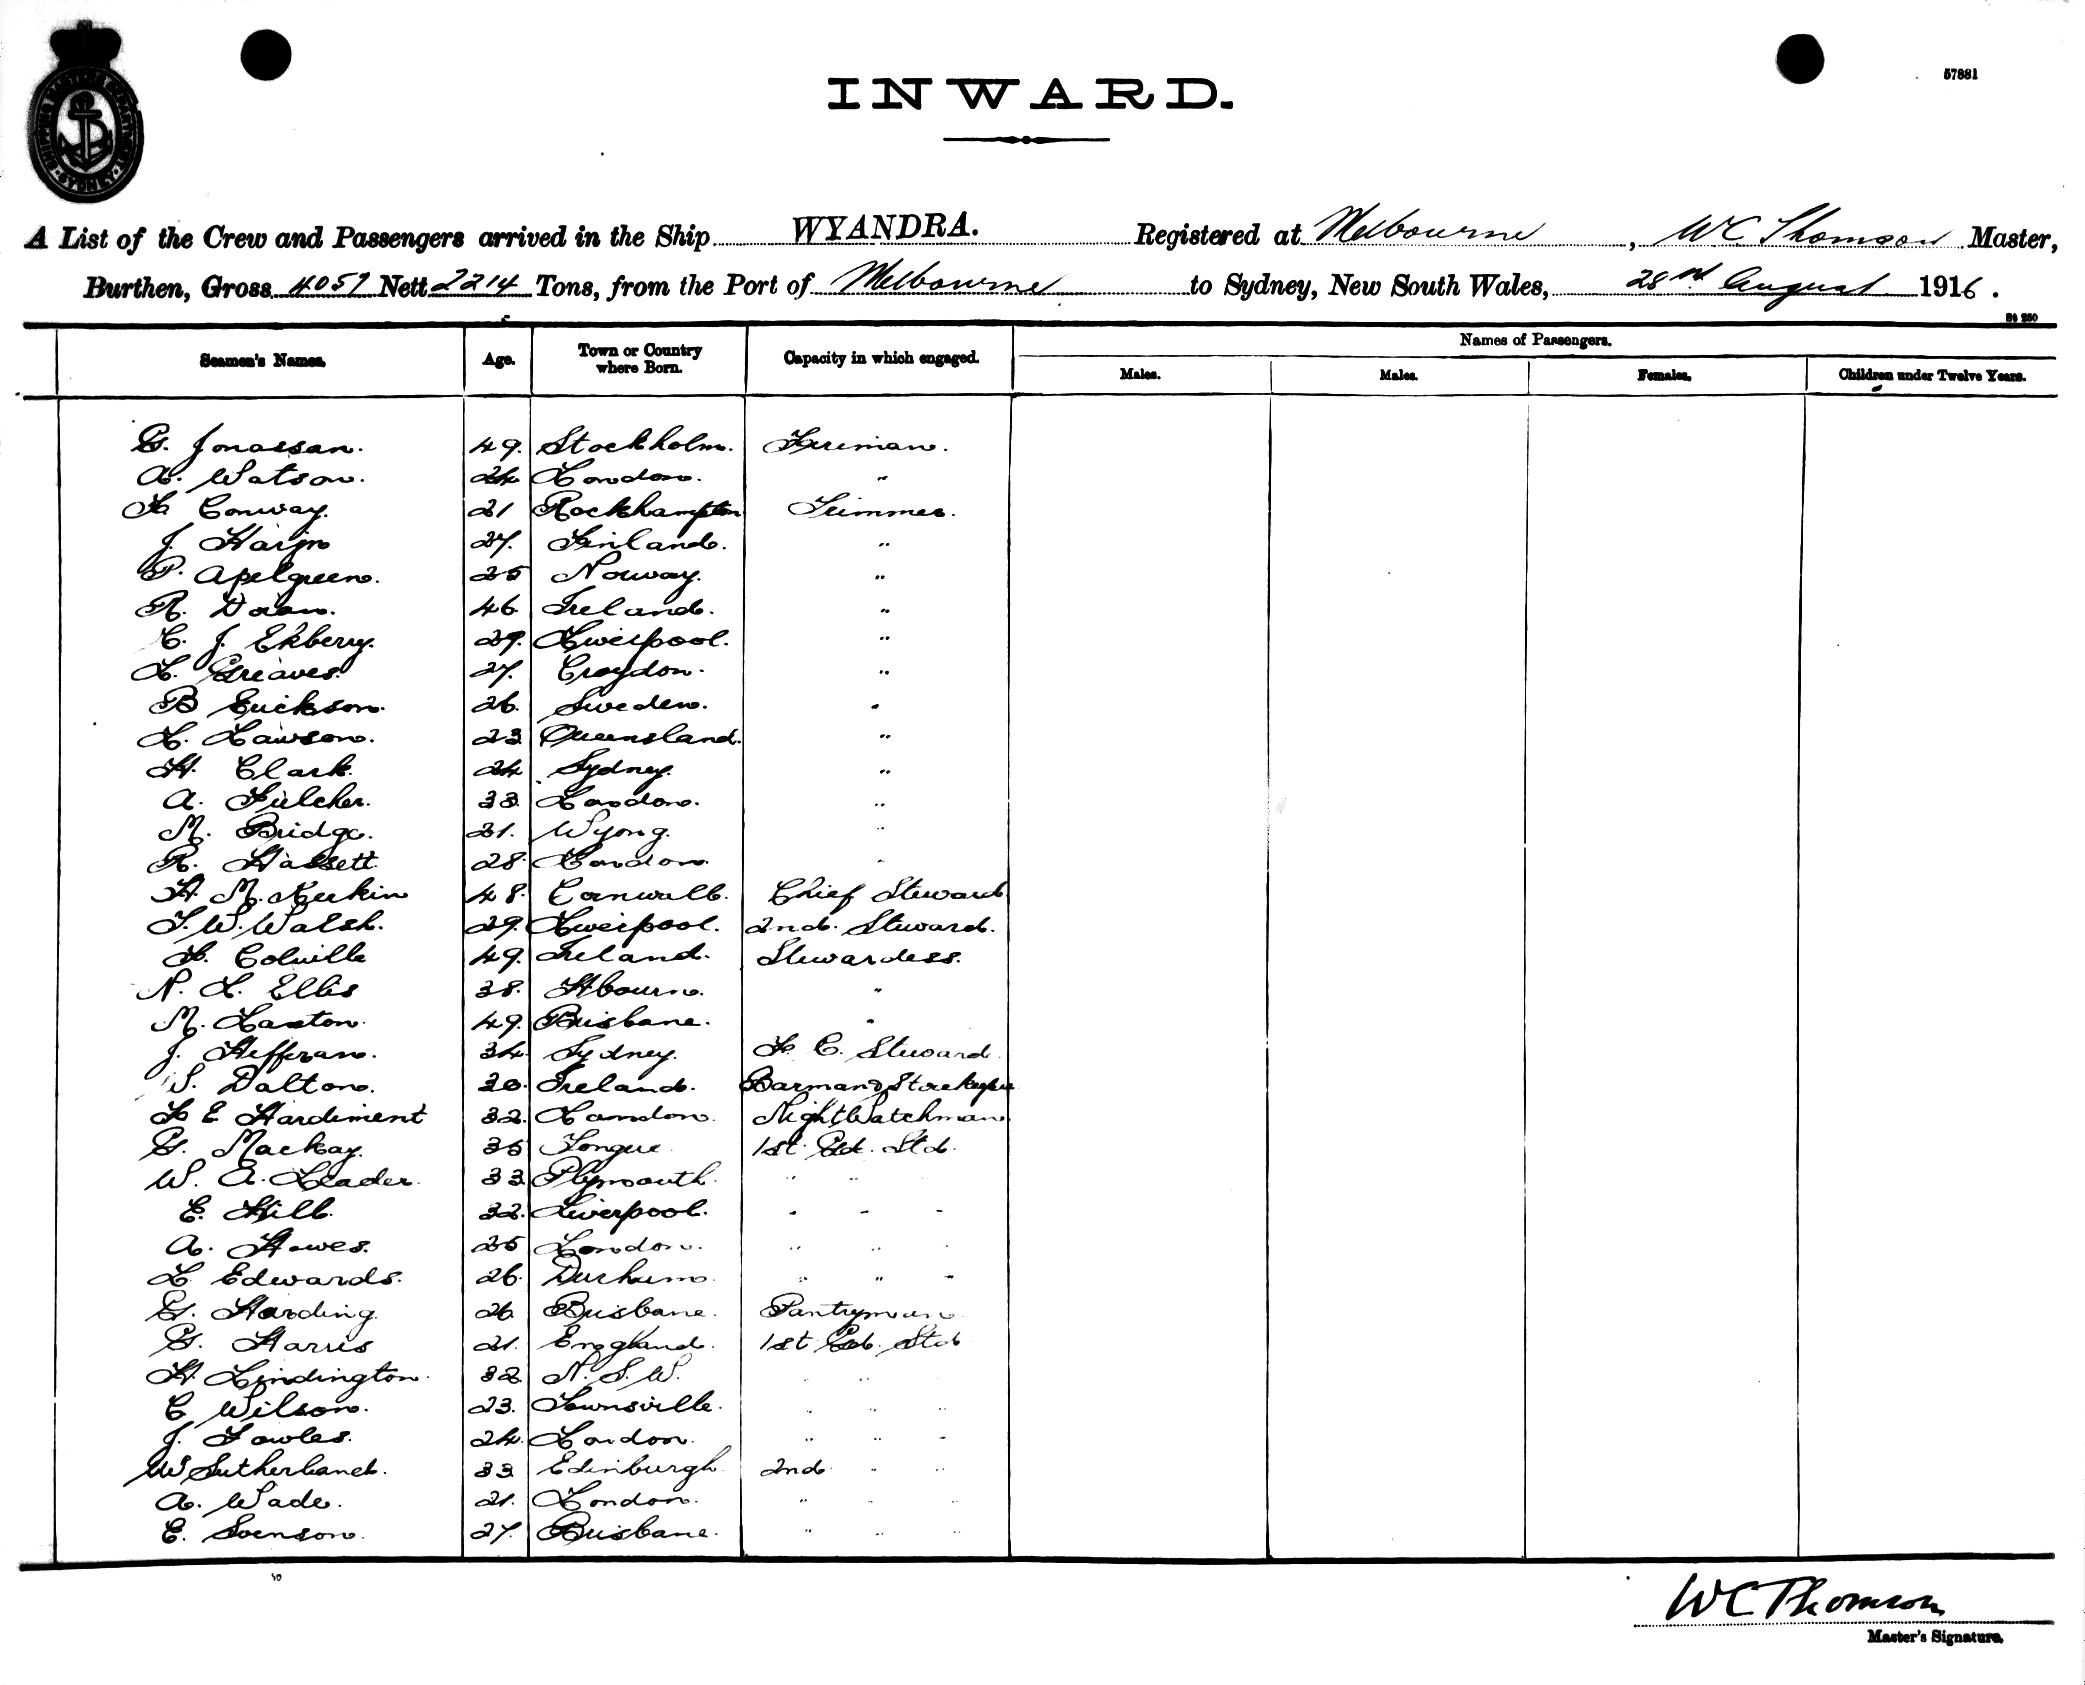 SHIPPING MASTER'S DEPARTMENT SYDNEY
57881
INWARD.
A List of the Crew and Passengers arrived in the Ship WYANDRA. Registered at Melbourne, WC Thomson Master,
Burthen, Gross 4059 Nett 2214 Tons, from the Port of Melbourne to Sydney, New South Wales, 28 August 1916.
St 260
Seamen's Names. Age. Town or Country where Born. Capacity in which engaged. Names of Passengers.
Males. Males. Females. Children under Twelve Years.
G. Jonassan. 49. Stockholm. Fireman.
A. Watson. 24 London. "
F. Conway. 21 Rockhampton Trimmer.
J. 27. Finland. "
P. Apelgreen. 25 Norway. "
R. Doran. 46 Ireland. "
C. J. Ekberg. 29. Liverpool. "
L. Greaves. 27. Croydon. "
B Erickson. 26. Sweden. "
L. Lawson. 23 Queensland. "
H. Clark. 24 Sydney. "
A. Fulcher. 33 London. "
M. Bridge. 21. Wyong. "
R. Hassett 28. London. "
H. M. 48. Cornwall. Chief Steward
T. W. Walsh. 29. Liverpool. 2nd. Steward.
F. Colville 49. Ireland. Stewardess.
N. L. Ellis 38. "
M. Laxton. 49. Brisbane. "
J. Hefferan. 34. Sydney. F. C. Steward.
S. Dalton. 30. Ireland. Barman & Storekeeper
F E Hardiment 32. London. Night Watchman
G. Mackay. 35 Tongue 1st Std.
W. A. Leader. 33 Plymouth. " "
E. Hill. 32. Liverpool. " " "
A. Hawes. 25 London. " " "
L. Edwards. 26. Durham. " " "
G. Harding. 26 Brisbane. Pantryman
G. Harris 21. England. 1st Std
H. Lindington. 32 N. S. W. " "
C Wilson. 23. Townsville. " " "
J. Fowles. 24. London. " " "
W Sutherland. 33 Edinburgh. 2nd " "
A. Wade. 21. London. " " "
E. Svenson. 27. Brisbane. " " "
WC Thomson
Master's Signature.